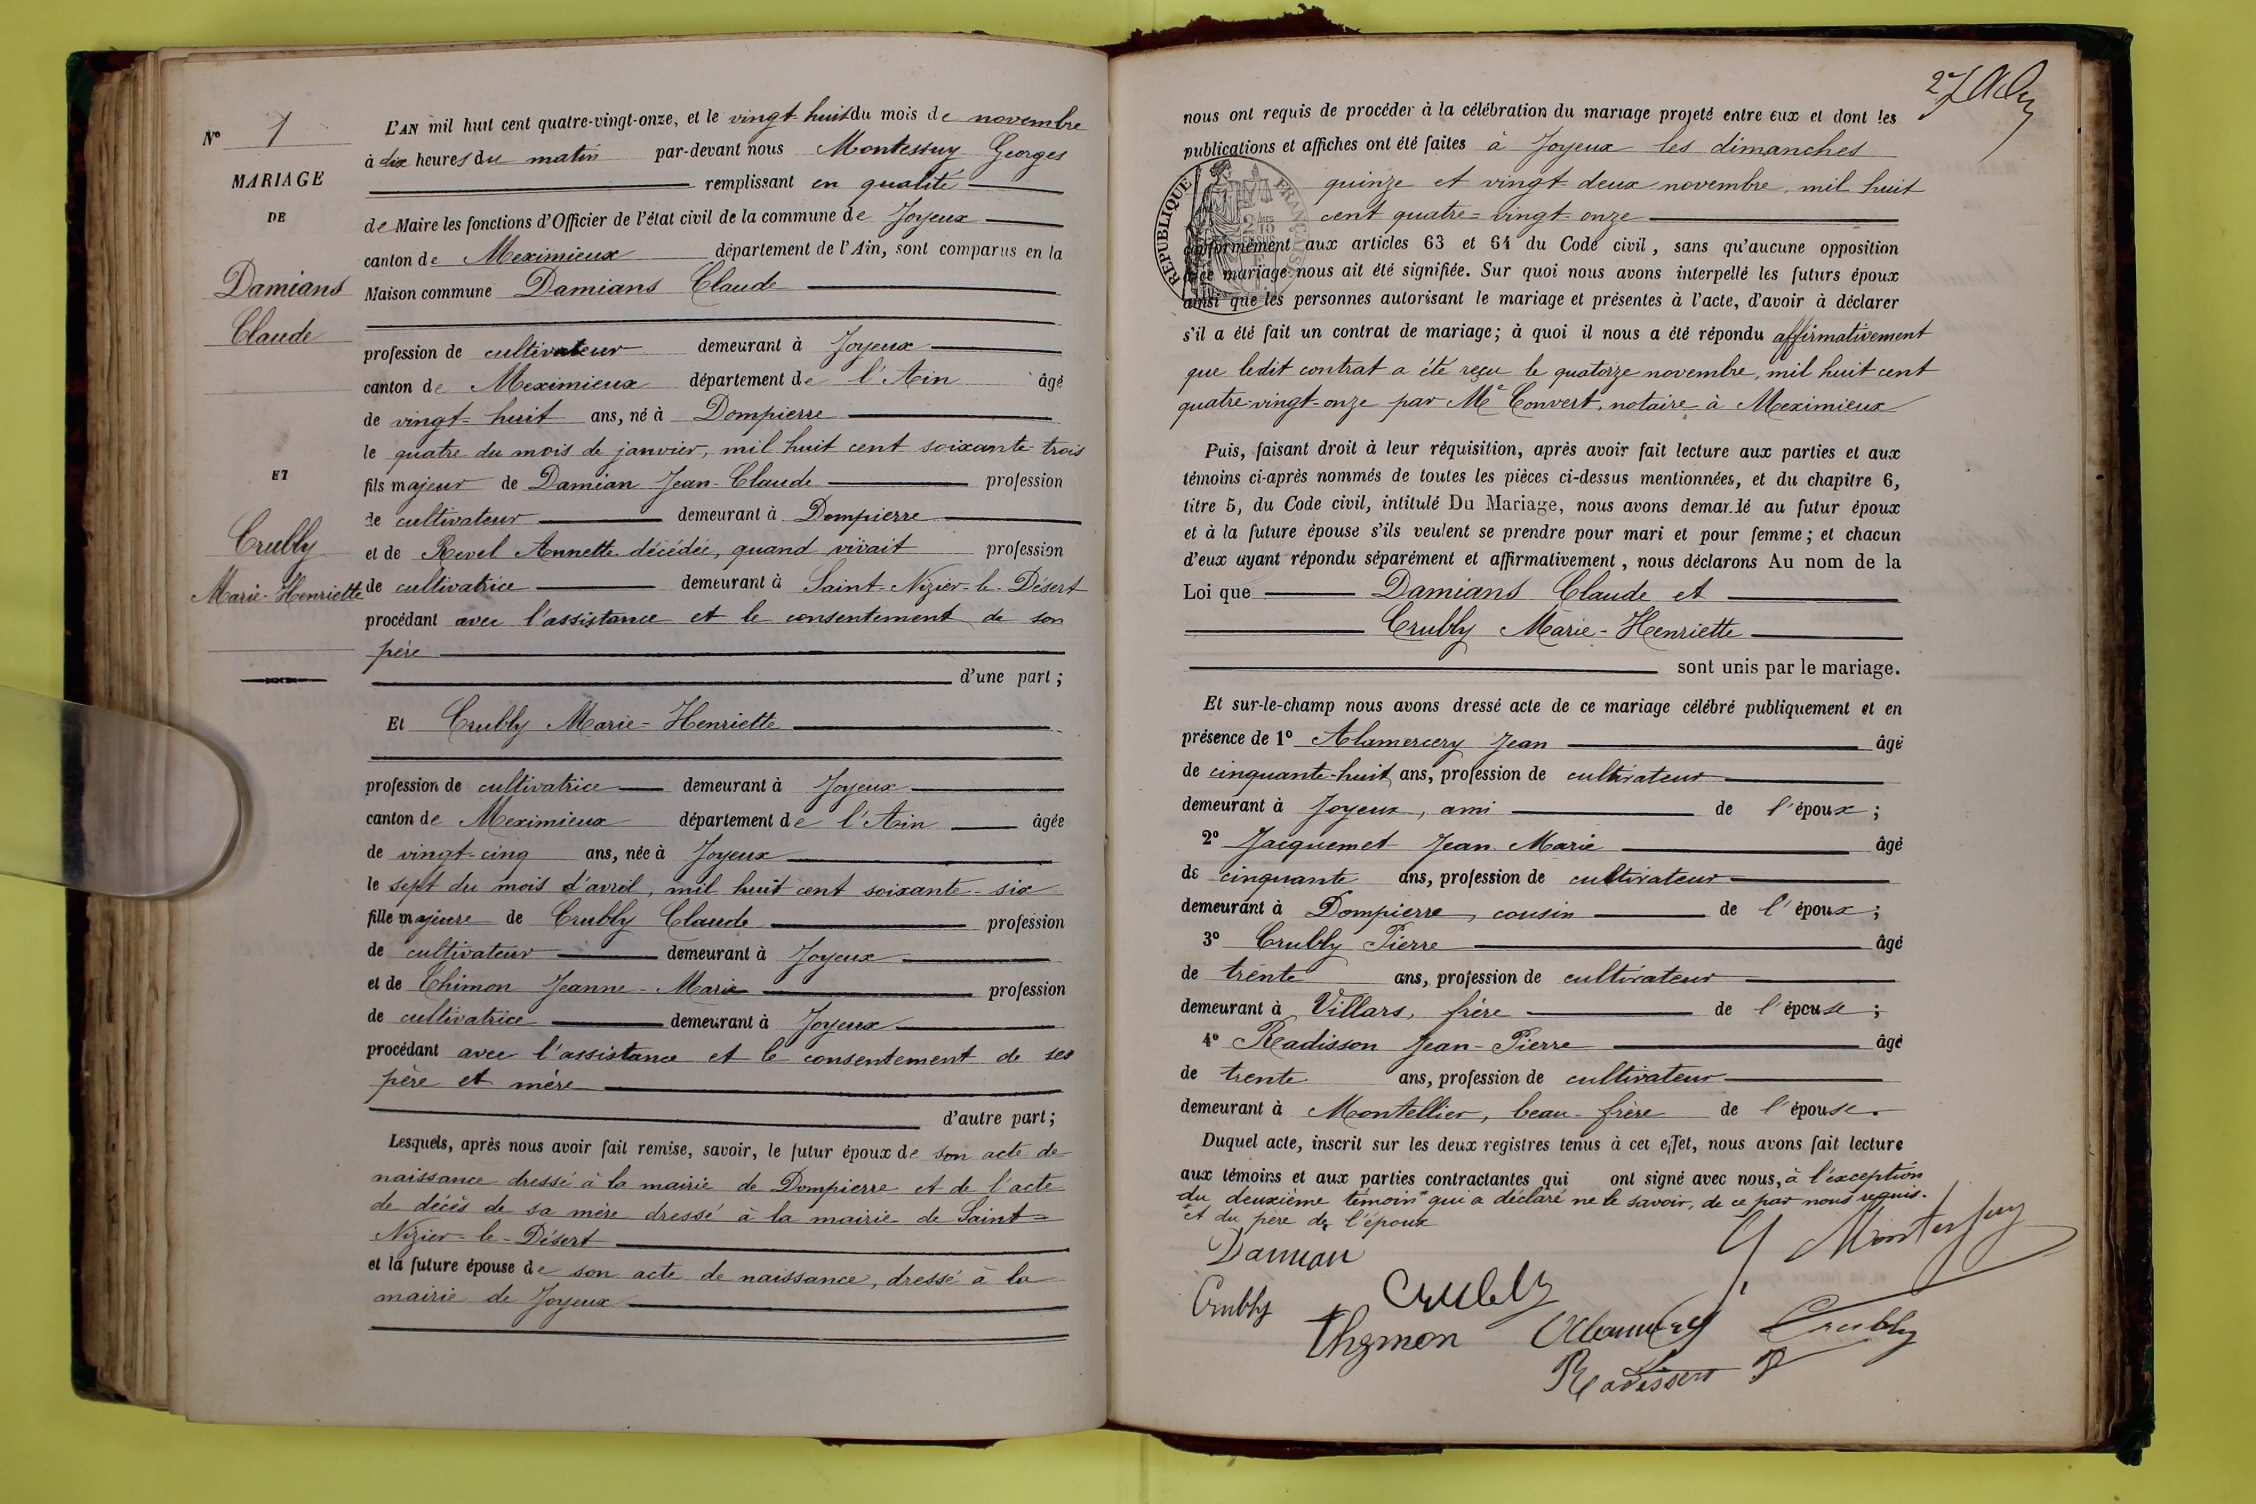 N° 1
MARIAGE
DE
Damians
Claude
ET
Crubly
Marie-Henriette
L'AN mil huit cent quatre-vingt-onze, et le vingt-huit du mois de novembre
à dix heures du matin par-devant nous Montessuy Georges
remplissant en qualité
de Maire les fonctions d'Officier de l'état civil de la commune de Joyeux
canton de Meximieux département de l'Ain, sont comparus en la
Maison commune Damians Claude
profession de cultivateur demeurant à Joyeux
canton de Meximieux département de l'Ain âgé
de vingt-huit ans, né à Dompierre
le quatre du mois de janvier, mil huit cent soixante-trois
fils majeur de Damian Jean-Claude profession
de cultivateur demeurant à Dompierre
et de Revel Annette décédée, quand vivait profession
de cultivatrice demeurant à Saint-Nizier-le-Désert
procédant avec l'assistance et le consentement de son
père
d'une part ;
Et Crubly Marie-Henriette
profession de cultivatrice demeurant à Joyeux
canton de Meximieux département de l'Ain âgée
de vingt-cinq ans, née à Joyeux
le sept du mois d'avril, mil huit cent soixante-six
fille majeure de Crubly Claude profession
de cultivateur demeurant à Joyeux
et de Thimon Jeanne-Marie profession
de cultivatrice demeurant à Joyeux
procédant avec l'assistance et le consentement de ses
père et mère
d'autre part ;
Lesquels, après nous avoir fait remise, savoir, le futur époux de son acte de
naissance dressé à la mairie de Dompierre et de l'acte
de décès de sa mère dressé à la mairie de Saint-
Nizier-le-Désert
et la future épouse de son acte de naissance, dressé à la
mairie de Joyeux
27
nous ont requis de procéder à la célébration du mariage projeté entre eux et dont les
publications et affiches ont été faites à Joyeux les dimanches
quinze et vingt-deux novembre, mil huit
cent quatre-vingt-onze
REPUBLIQUE FRANÇAISE
conformément aux articles 63 et 64 du Code civil, sans qu'aucune opposition
à ce mariage nous ait été signifiée. Sur quoi nous avons interpellé les futurs époux
ainsi que les personnes autorisant le mariage et présentes à l'acte, d'avoir à déclarer
s'il a été fait un contrat de mariage ; à quoi il nous a été répondu affirmativement
que ledit contrat a été reçu le quatorze novembre, mil huit cent
quatre-vingt-onze par Me Convert, notaire à Meximieux
Puis, faisant droit à leur réquisition, après avoir fait lecture aux parties et aux
témoins ci-après nommés de toutes les pièces ci-dessus mentionnées, et du chapitre 6,
titre 5, du Code civil, intitulé Du Mariage, nous avons demandé au futur époux
et à la future épouse s'ils veulent se prendre pour mari et pour femme ; et chacun
d'eux ayant répondu séparément et affirmativement, nous déclarons Au nom de la
Loi que Damians Claude et
Crubly Marie-Henriette
sont unis par le mariage.
Et sur-le-champ nous avons dressé acte de ce mariage célébré publiquement et en
présence de 1° Alamercery Jean âgé
de cinquante-huit ans, profession de cultivateur
demeurant à Joyeux, ami de l'époux ;
2° Jacquemet Jean Marie âgé
de cinquante ans, profession de cultivateur
demeurant à Dompierre, cousin de l'époux ;
3° Crubly Pierre âgé
de trente ans, profession de cultivateur
demeurant à Villars, frère de l'épouse ;
4° Radisson Jean-Pierre âgé
de trente ans, profession de cultivateur
demeurant à Montellier, beau-frère de l'épouse.
Duquel acte, inscrit sur les deux registres tenus à cet effet, nous avons fait lecture
aux témoins et aux parties contractantes qui ont signé avec nous, à l'exception
du deuxième témoin* qui a déclaré ne le savoir, de ce par nous requis.
*et du père de l'époux
Damian
G Montessuy
Crubly
Crubly
Thymon
Alamercery
Crubly
Radisson P